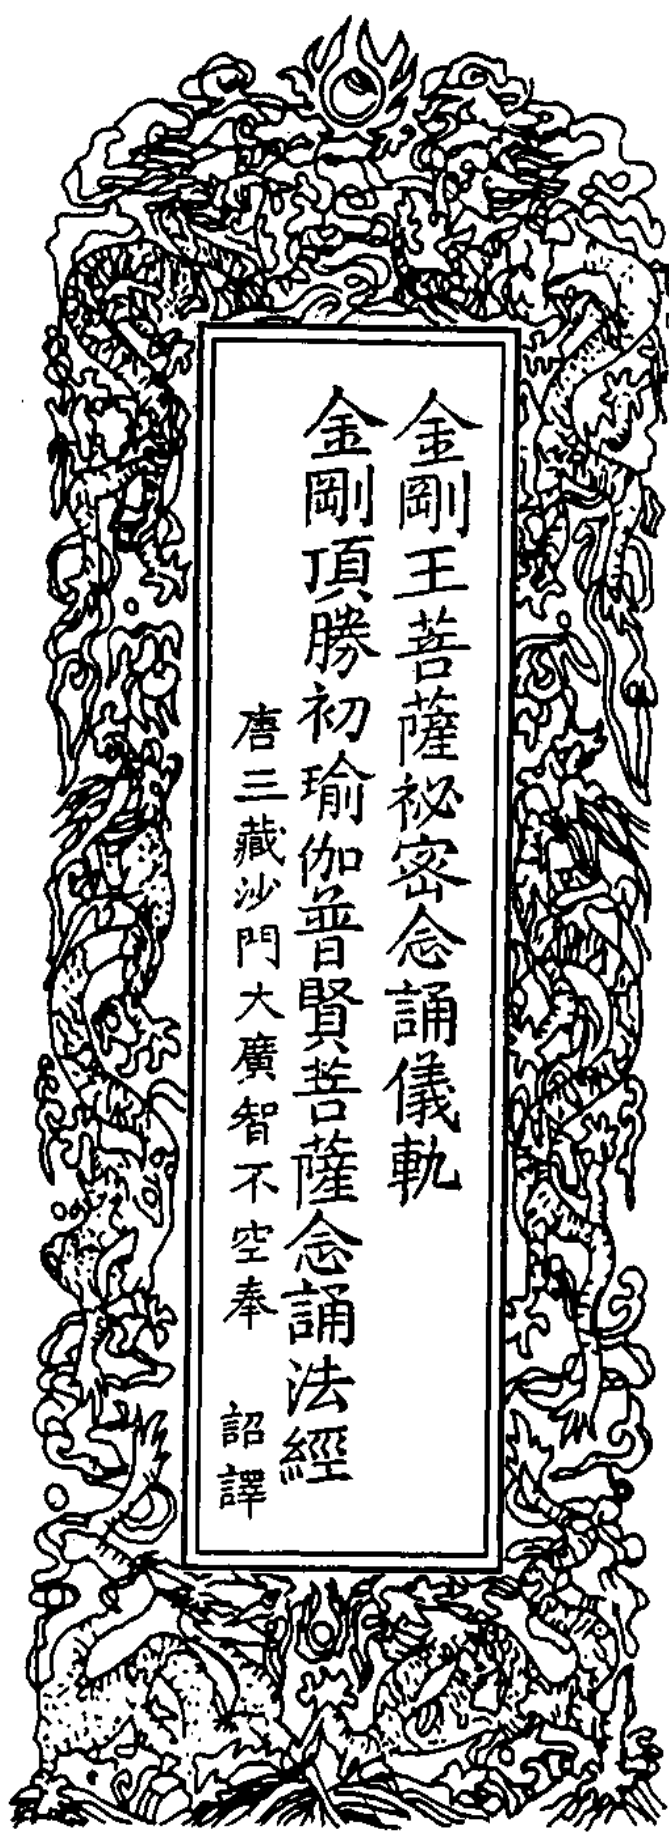 金剛王菩薩祕密念誦儀軌
金剛頂勝初瑜伽普賢菩薩念誦法經
唐三藏沙門大廣智不空奉　詔譯